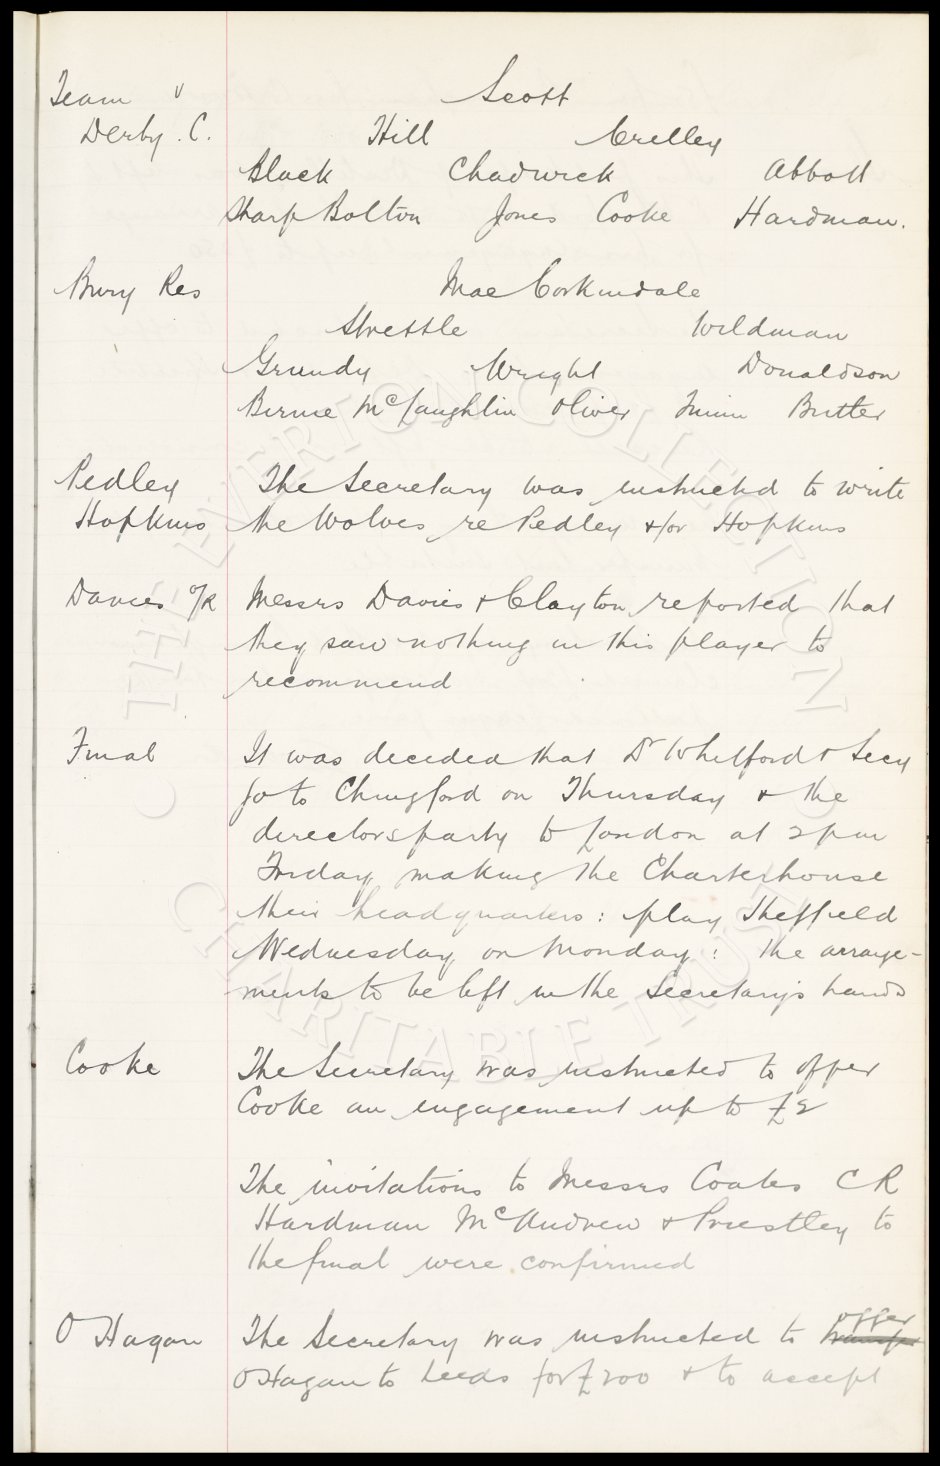 Team v Scott
Derby. C. Hill Crelley
Black Chadwick Abbott
Sharp Bolton Jones Cooke Hardman.
Bury Res MacCorkindale
Strettle Wildman
Grundy Wright Donaldson
Birnie McLaughlin Oliver Butler
Pedley The Secretary was instructed to write
Hopkins the Wolves re Pedley &/or Hopkins
Davies o/R Messrs Davies & Clayton reported that
they saw nothing in this player to
recommend
Final It was decided that Dr Whitford & Secy
go to Chingford on Thursday & the
directors party to London at 2pm
Friday making the Charterhouse
their headquarters: play Sheffield
Wednesday on Monday: the arrange-
ments to be left in the Secretary's hands
Cooke The Secretary was instructed to offer
Cooke an engagement up to £2
The invitations to Messrs Coates C R
Hardman McAndrew & Priestley to
the final were confirmed
O'Hagan The Secretary was instructed to offer
O'Hagan to Leeds for £200 & to accept
THE EVERTON COLLECTION
CHARITABLE TRUST